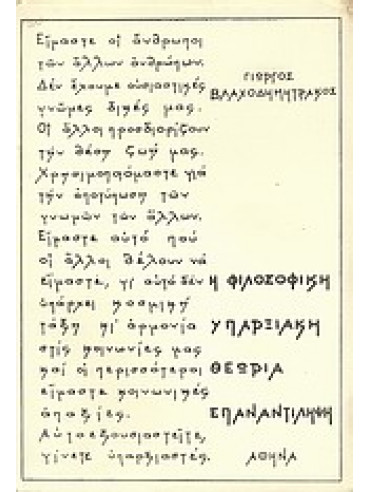 Εἴμαστε οἱ ἄνθρωποι
τῶν ἄλλων ἀνθρώπων.
Δέν ἔχουμε οὐσιαστικές
γνῶμες δικές μας.
Οἱ ἄλλοι προσδιορίζουν
τήν θέση ζωῆς μας.
Χρησιμοποιόμαστε γιά
τήν ἀποτύπωση τῶν
γνωμῶν τῶν ἄλλων.
Εἴμαστε αὐτό πού
οἱ ἄλλοι θέλουν νά
εἴμαστε, γι' αὐτό δέν
ὑπάρχει κοσμική
τάξη κι' ἁρμονία
στίς κοινωνίες μας
καί οἱ περισσότεροι
εἴμαστε κοινωνικές
ἀπαξίες.
Αὐτοεξουσιαστεῖτε,
γίνετε ὑπαρξιαστές.
ΓΙΩΡΓΟΣ
ΒΛΑΧΟΔΗΜΗΤΡΑΚΟΣ
Η ΦΙΛΟΣΟΦΙΚΗ
ΥΠΑΡΞΙΑΚΗ
ΘΕΩΡΙΑ
ΕΠΑΝΑΝΤΙΛΗΨΗ
ΑΘΗΝΑ